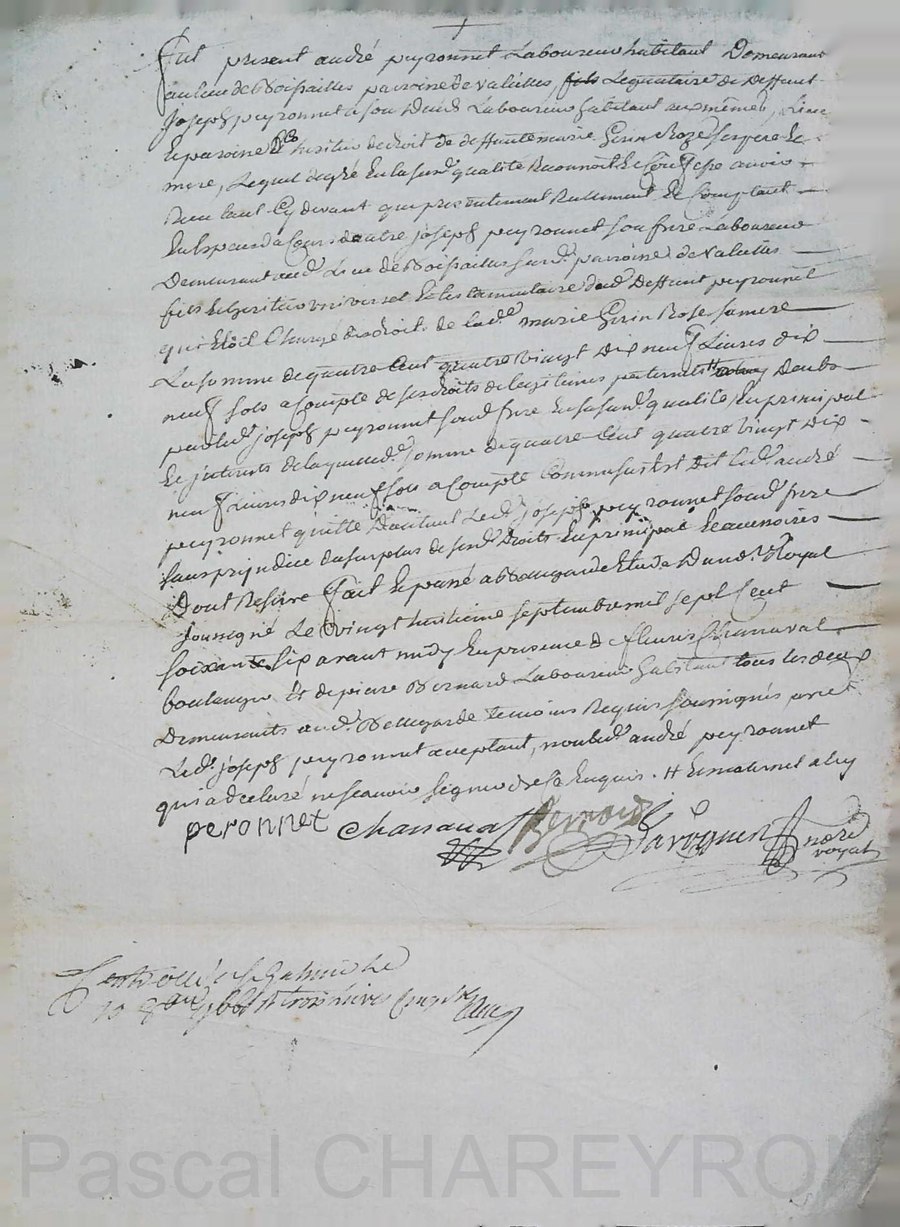 fut present andré peyronnet Laboureur habitant Demeurant
au lieu de Boissailles paroisse de valeilles, fils Legataire de Deffunt
Joseph peyronnet a son vivant Laboureur habitant aux mêmes Lieu
et paroisse Et heritier de droit de deffunte marie Gerin Roze ses pere Et
mere, Lequel de gré En la sud. qualité Reconnoit Et Confesse avoir
Reçu tant Cy devant que presentement Reellement Et Comptant
En Especes de Cours d'autre joseph peyronnet son frere Laboureur
Demeurant aud. Lieu de Boissailles sud. paroisse de valeilles
fils Et heritier universel Et testamentaire dud. Deffunt peyronnet
qui Etoit Chargé des droits de lad.e marie Gerin Rose sa mere
La somme de quatre Cent quatre vingt Dix neuf Livres dix
neuf sols a compte de ses droits de legitimes paternels Deubs
par led. joseph peyronnet son d. frere En sa sud. qualité En principal
Et jnterets de laquelle d. somme de quatre Cent quatre vingt Dix
neuf Livres dix neuf sols a Compte Comme sus Est Dit led. andré
peyronnet quitte Dautant Led. joseph peyronnet son d. frere
sans prejudice du surplus de sesd. Droits En principal Et accessoires
Dont Reserve fait Et passé a Bellegarde Etude Du no.re Royal
soussigné Le vingt huitieme septembre mil sept Cent
soixante six avant midy En presence de fleuris Chanaval
boulanger Et de pierre Bernard Laboureur habitant tous les deux
Demeurants aud. Bellegarde temoins Requis soussignés avec
Led. joseph peyronnet acceptant, non led. andré peyronnet
qui a declaré ne scavoir signer de ce Enquis. # Et maternel a luy
peronnet Chanaval Bernard no.re
royal
Controllé a St Galmier Le
10 8bre 1766 Rt trois livres
Pascal CHAREYRON